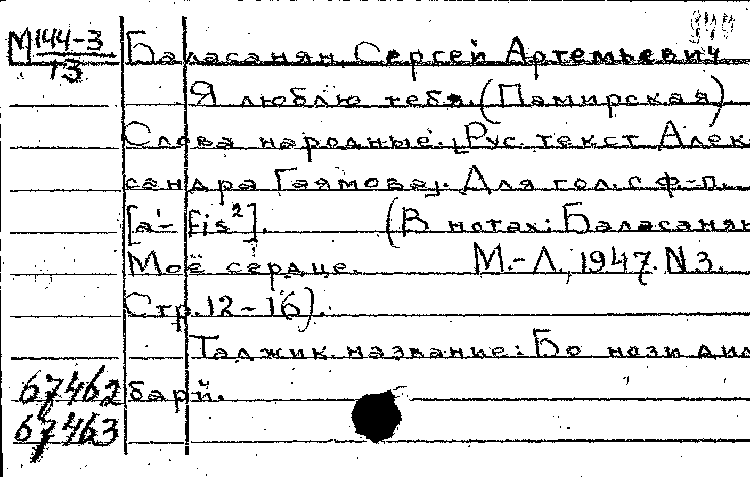 М144-3
13
Баласанян, Сергей Артемьевич
Я люблю тебя. (Памирская)
Слова народные. [Рус. текст Алек-
сандра Гаямова]. Для гол. с ф.-п.
[a¹- fis²]. (В нотах: Баласанян
Моё сердце. М.-Л., 1947. N 3.
Стр. 12-16).
Таджик. название: Бо нози дил
барӣ.
67462
67463